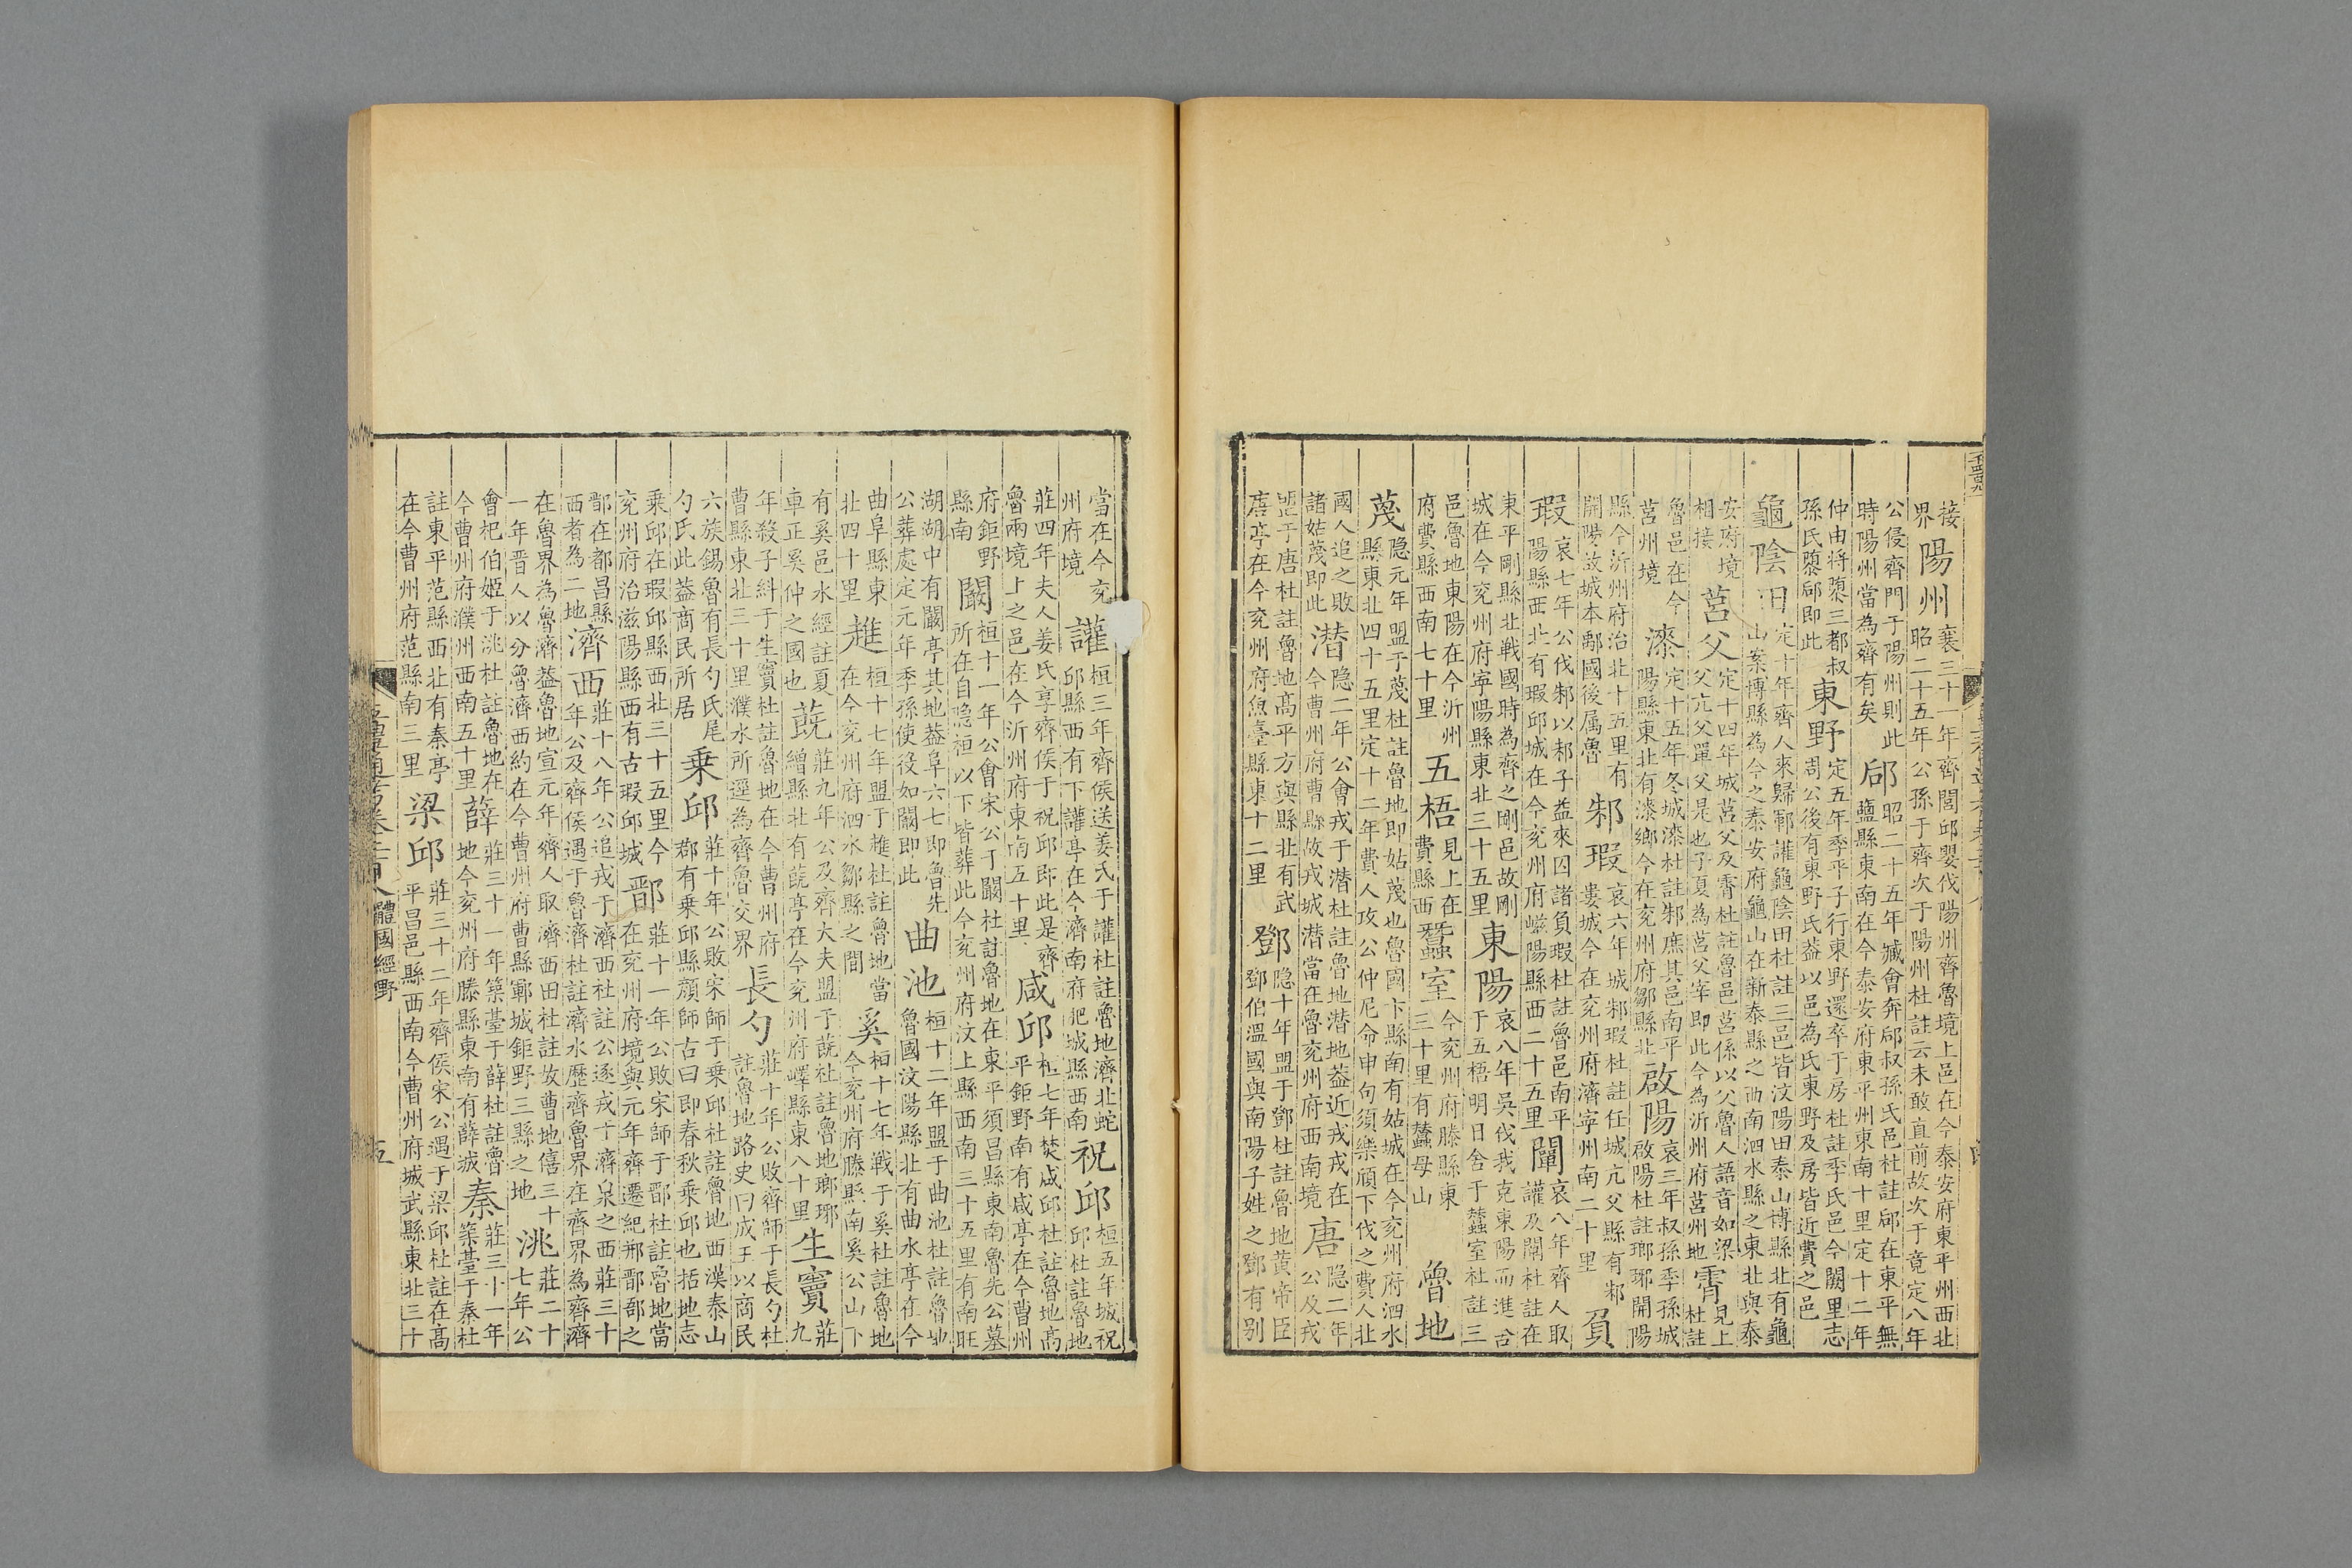 接
界
陽州
襄三十一年齊閭邱嬰伐陽州齊魯境上邑在今泰安府東平州西北
昭二十五年公孫于齊次于陽州杜註云未敢直前故次于竟定八年
公侵齊門于陽州則此
時陽州當為齊有矣
郈
昭二十五年臧會奔郈叔孫氏邑杜註郈在東平無
鹽縣東南在今泰安府東平州東南十里定十二年
仲由将墮三都叔
孫氏墮郈即此
東野
定五年季平子行東野還卒于房杜註季氏邑今闕里志
周公後有東野氏葢以邑為氏東野及房皆近費之邑
龜陰田
定十年齊人來歸鄆讙龜陰田杜註三邑皆汶陽田泰山博縣北有龜
山案博縣為今之泰安府龜山在新泰縣之西南泗水縣之東北與泰
安府境
相接
莒父
定十四年城莒父及霄杜註魯邑莒係以父魯人語音如梁
父亢父單父是也子夏為莒父宰即此今為沂州府莒州地
霄
見上
杜註
魯邑在今
莒州境
漆
定十五年冬城漆杜註邾庶其邑南平
陽縣東北有漆鄉今在兖州府鄒縣北
啟陽
哀三年叔孫季孫城
啟陽杜註瑯琊開陽
縣今沂州府治北十五里有
開陽故城本鄅國後属魯
邾瑕
哀六年城邾瑕杜註任城亢父縣有邾
婁城今在兖州府濟寧州南二十里
負
瑕
哀七年公伐邾以邾子益來囚諸負瑕杜註魯邑南平
陽縣西北有瑕邱城在今兖州府嵫陽縣西二十五里
闡
哀八年齊人取
讙及闡杜註在
東平剛縣北戰國時為齊之剛邑故剛
城在今兖州府寧陽縣東北三十五里
東陽
哀八年吳伐我克東陽而進舍
于五梧明日舍于蠶室杜註三
邑魯地東陽在今沂州
府費縣西南七十里
五梧
見上在
費縣西
蠶室
今兖州府滕縣東
三十里有蠶母山
魯地
蔑
隐元年盟于蔑杜註魯地即姑蔑也魯國卞縣南有姑城在今兖州府泗水
縣東北四十五里定十二年費人攻公仲尼命申句須樂頎下伐之費人北
國人追之敗
諸姑蔑即此
潜
隐二年公會戎于潜杜註魯地潜地葢近戎戎在
今曹州府曹縣故戎城潜當在魯兖州府西南境
唐
隐二年
公及戎
盟于唐杜註魯地高平方與縣北有武
唐亭在今兖州府魚臺縣東十二里
鄧
隐十年盟于鄧杜註魯地黄帝臣
鄧伯溫國與南陽子姓之鄧有别
當在今兖
州府境
讙
桓三年齊侯送姜氏于讙杜註魯地濟北蛇
邱縣西有下讙亭在今濟南府肥城縣西南
祝邱
桓五年城祝
邱杜註魯地
莊四年夫人姜氏享齊侯于祝邱即此是齊
魯兩境上之邑在今沂州府東南五十里
咸邱
桓七年焚咸邱杜註魯地高
平鉅野南有咸亭在今曹州
府鉅野
縣南
闞
桓十一年公會宋公于闞杜註魯地在東平須昌縣東南魯先公墓
所在自隐桓以下皆葬此今兖州府汶上縣西南三十五里有南旺
湖湖中有闞亭其地葢阜六七即魯先
公葬處定元年季孫使役如闞即此
曲池
桓十二年盟于曲池杜註魯地
魯國汶陽縣北有曲水亭在今
曲阜縣東
北四十里
趡
桓十七年盟于趡杜註魯地當
在今兖州府泗水鄒縣之間
奚
桓十七年戰于奚杜註魯地
今兖州府滕縣南奚公山下
有奚邑水經註夏
車正奚仲之國也
蔇
莊九年公及齊大夫盟于蔇杜註魯地瑯琊
繒縣北有蔇亭在今兖州府嶧縣東八十里
生竇
莊
九
年殺子糾于生竇杜註魯地在今曹州府
曹縣東北三十里濮水所逕為齊魯交界
長勺
莊十年公敗齊師于長勺杜
註魯地路史曰成王以商民
六族錫魯有長勺氏尾
勺氏此葢商民所居
乗邱
莊十年公敗宋師于乗邱杜註魯地西漢泰山
郡有乗邱縣顔師古曰即春秋乗邱也括地志
乗邱在瑕邱縣西北三十五里今
兖州府治滋陽縣西有古瑕邱城
鄑
莊十一年公敗宋師于鄑杜註魯地當
在兖州府境與元年齊遷紀郱鄑郚之
鄑在都昌縣
西者為二地
濟西
莊十八年公追戎于濟西杜註公逐戎于濟泉之西莊三十
年公及齊侯遇于魯濟杜註濟水歴齊魯界在齊界為齊濟
在魯界為魯濟葢魯地宣元年齊人取濟西田杜註故曹地僖三十
一年晋人以分魯濟西約在今曹州府曹縣鄆城鉅野三縣之地
洮
莊二十
七年公
會杞伯姬于洮杜註魯地在
今曹州府濮州西南五十里
薛
莊三十一年築薹于薛杜註魯
地今兖州府滕縣東南有薛城
秦
莊三十一年
築薹于秦杜
註東平范縣西北有秦亭
在今曹州府范縣南三里
梁邱
莊三十二年齊侯宋公遇于梁邱杜註在高
平昌邑縣西南今曹州府城武縣東北三十
五禮通考卷二百八
體國經野
五